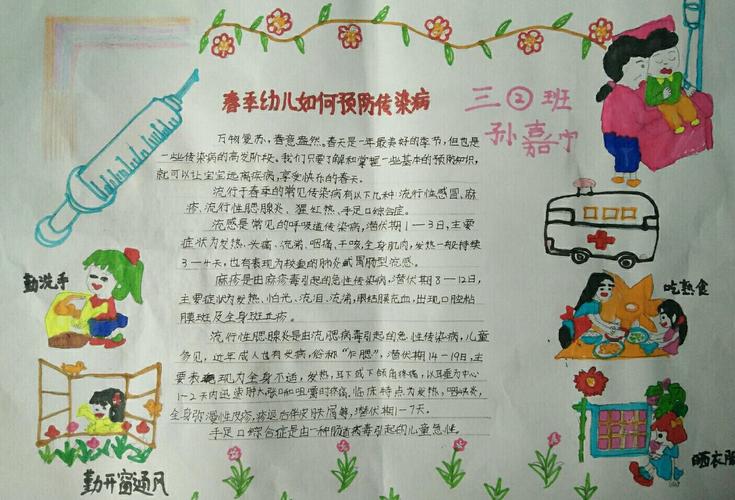 春季幼儿如何预防传染病
三②班
孙嘉宁
万物复苏,春意盎然。春天是一年最美好的季节,但也是
一些传染病的高发阶段。我们只要了解和掌握一些基本的预防知识,
就可以让宝宝远离疾病,享受快乐的春天。
流行于春季的常见传染病有以下几种:流行性感冒、麻
疹、流行性腮腺炎、猩红热、手足口综合症。
流感是常见的呼吸道传染病,潜伏期1—3日,主要
症状为发热、头痛、流涕、咽痛、干咳,全身肌肉,发热一般持续
3—4天,也有表现为较重的肺炎或胃肠型流感。
麻疹是由麻疹毒引起的急性传染病,潜伏期8—12日,
主要症状为发热、怕光、流泪、流涕,眼结膜充血,出现口腔粘
膜斑及全身斑丘疹。
流行性腮腺炎是由流腮病毒引起的急性传染病,儿童
多见,近年成人也有发病,俗称"炸腮",潜伏期14—19日,主
要表现为全身不适,发热,耳下或下颌角疼痛,以耳垂为中心
1—2天内迅速肿大,张口和咀嚼时疼痛。临床特点为发热,咽峡炎,
全身弥漫性皮疹,疹退后伴皮肤屑薄,潜伏期1—7天。
手足口综合症是由一种肠道病毒引起的儿童急性。
勤洗手
勤开窗通风
吃熟食
晒衣服